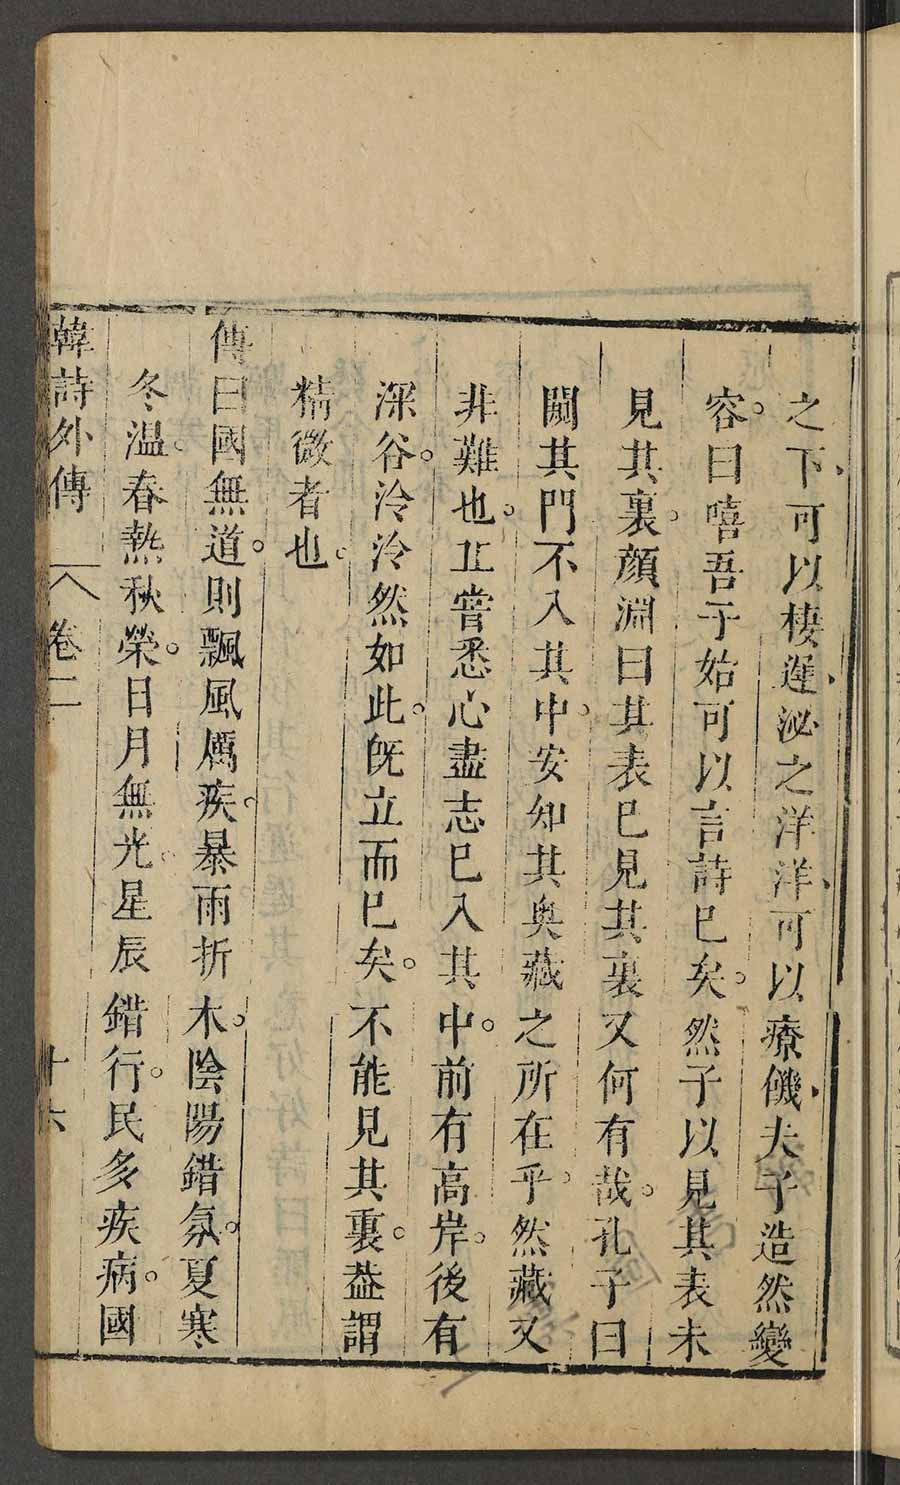 之下、可以棲遲、泌之洋洋、可以療饑、夫子造然變
容。曰嘻吾子始可以言詩已矣。然子以見其表未
見其裏。顏淵曰其表已見其裏又何有哉。孔子曰
闚其門不入其中。安知其奥藏之所在乎。然藏又
非難也。丘嘗悉心盡志已入其中。前有高岸。後有
深谷。泠泠然如此。旣立而已矣。不能見其裏。葢謂
精微者也。
傳曰國無道。則飄風厲疾。暴雨折木。陰陽錯氛。夏寒
冬温。春熱秋榮。日月無光。星辰錯行。民多疾病。國
韓詩外傳 卷二 十六